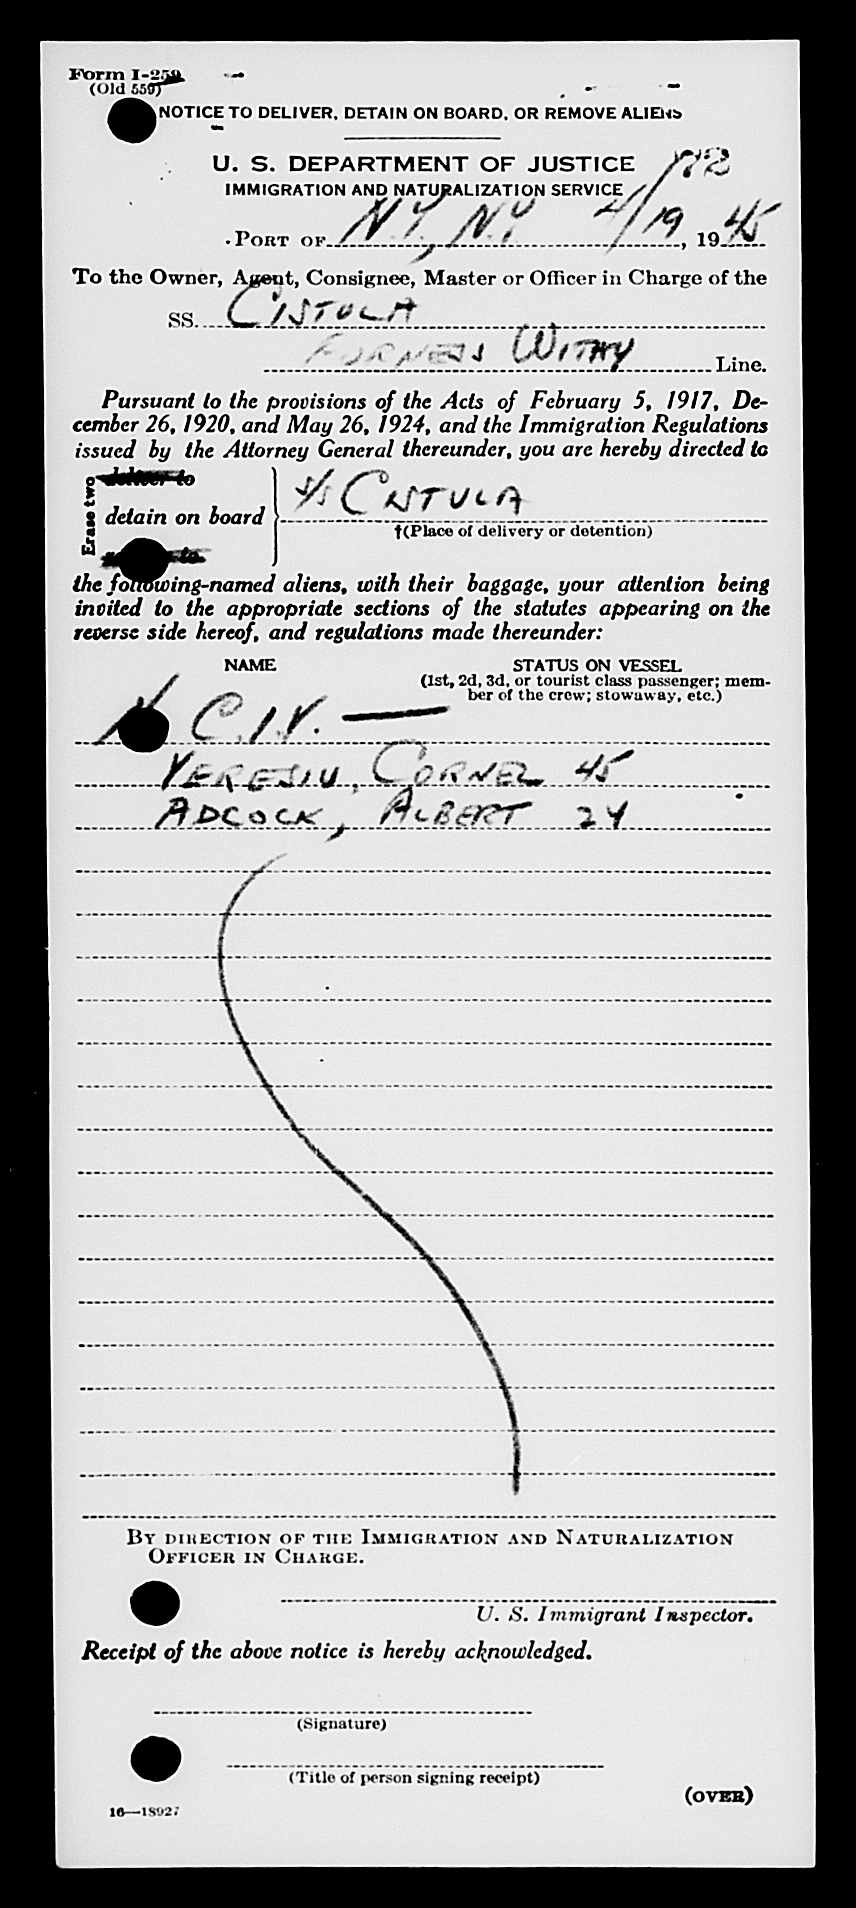 Form I-259
(Old 559)
NOTICE TO DELIVER, DETAIN ON BOARD, OR REMOVE ALIENS
U. S. DEPARTMENT OF JUSTICE
IMMIGRATION AND NATURALIZATION SERVICE
PORT OF N.Y., N.Y. 4/19, 1945
To the Owner, Agent, Consignee, Master or Officer in Charge of the
SS. CISTULA
FURNESS WITHY Line.
Pursuant to the provisions of the Acts of February 5, 1917, De-
cember 26, 1920, and May 26, 1924, and the Immigration Regulations
issued by the Attorney General thereunder, you are hereby directed to
Erase two
deliver to
detain on board S/S CISTULA
†(Place of delivery or detention)
to
the following-named aliens, with their baggage, your attention being
invited to the appropriate sections of the statutes appearing on the
reverse side hereof, and regulations made thereunder:
NAME STATUS ON VESSEL
(1st, 2d, 3d, or tourist class passenger; mem-
ber of the crew; stowaway, etc.)
C.I.V. —
VERESIU, CORNEL 45
ADCOCK, ALBERT 24
BY DIRECTION OF THE IMMIGRATION AND NATURALIZATION
OFFICER IN CHARGE.
U. S. Immigrant Inspector.
Receipt of the above notice is hereby acknowledged.
(Signature)
(Title of person signing receipt)
(OVER)
16—18927